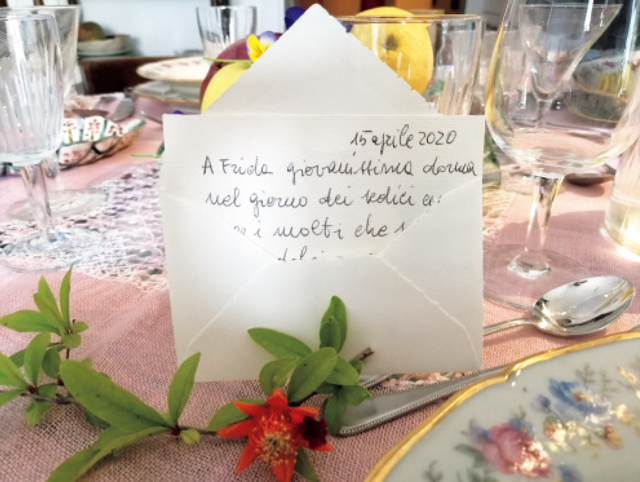 15 aprile 2020
A Frida giovanissima donna
nel giorno dei sedici
i molti che